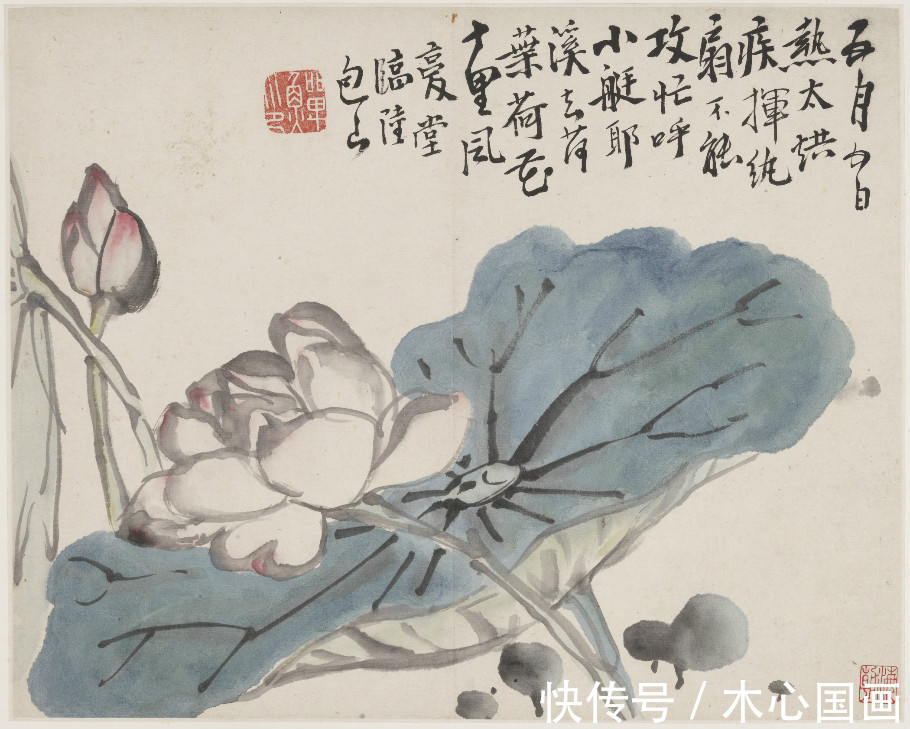 五月日
熱太烘
疾揮紈
扇不能
攻忙呼
小艇耶
溪去荷
葉荷花
十里風
堂
臨陸
包山
快传号 / 木心国画